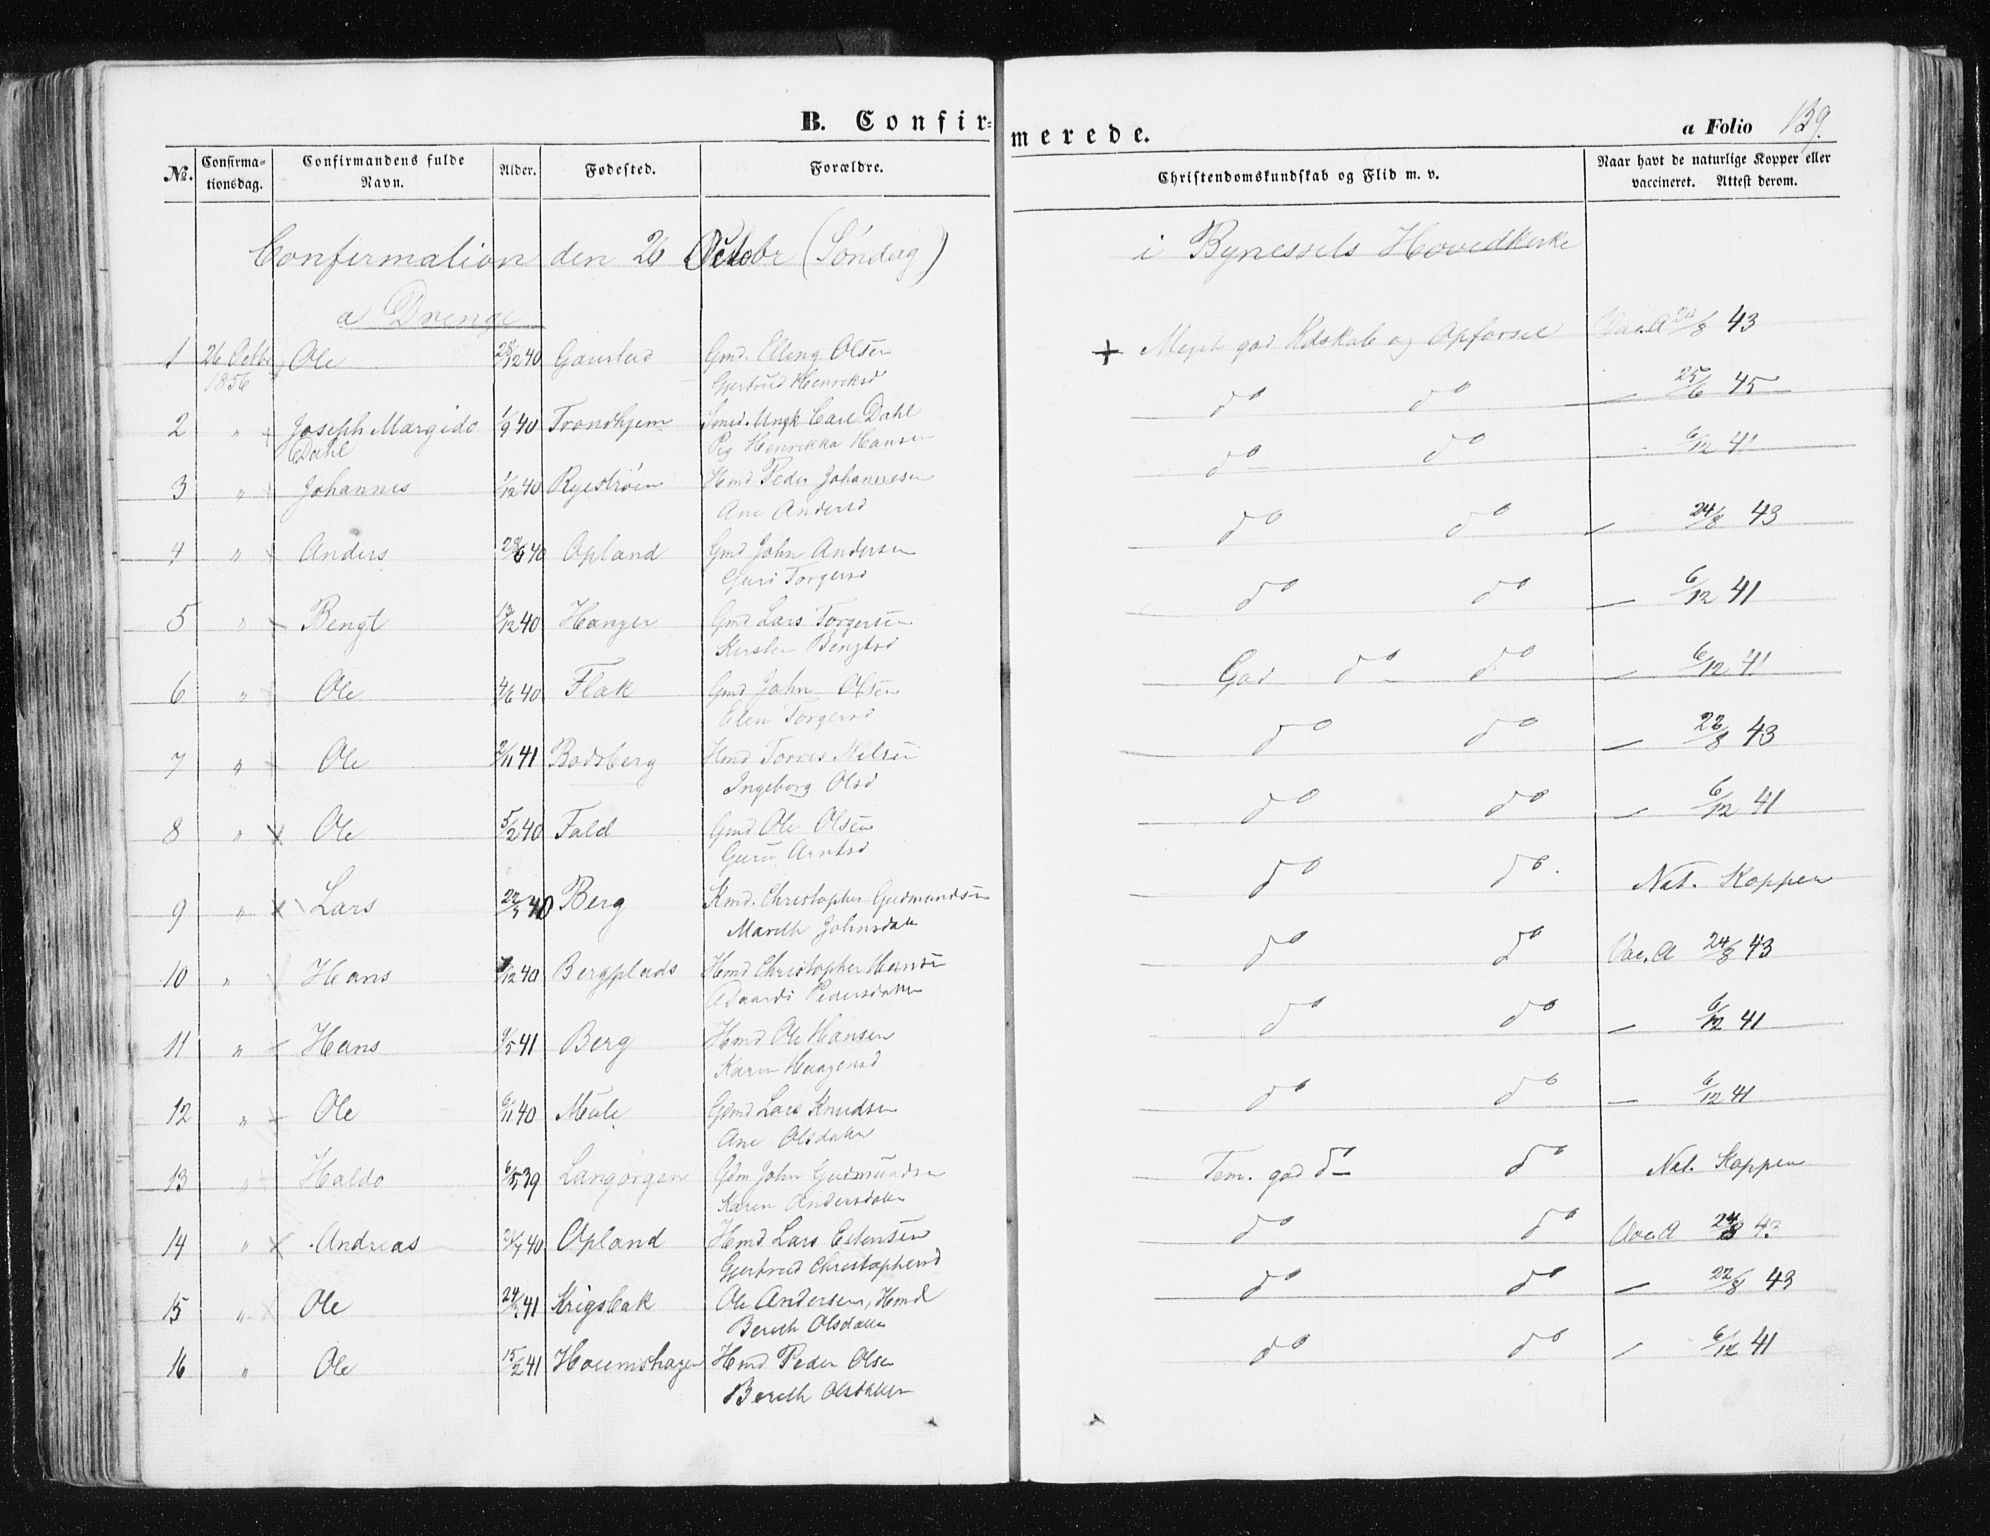 B. Confirmerede.
a Folio 139.
No. Confirmationsdag. Confirmandens fulde Navn. Alder. Fødested. Forældre. Christendomskundskab og Flid m. v. Naar havt de naturlige Kopper eller vaccineret. Attest derom.
Confirmation den 26 Octobr (Søndag) i Bynessets Hovedkirke
a Drenge
1 26 Octbr 1856 Ole 28/12 40 Gaustad Gmd. Elling Olsen + Meget god Kdskab og Opførsel Vac. A 24/8 43
Gjertrud Henriksd
2 " Joseph Margido Dahl 1/9 40 Trondhjem Smed. Carl Dahl do do 25/6 45
Pig Henrikka Hansen
3 " Johannes 1/12 40 Ryestrøen Hmd Peder Johannesen do do 6/12 41
Ane Andersd
4 " Anders 28/6 40 Opland Gmd John Andersen do do 24/8 43
Guri Torgersd
5 " Bengt 13/12 40 Hanger Gmd Lars Torgersen do do 6/12 41
Kirsten Bengtsd
6 " Ole 4/6 40 Flak Gmd John Olsen God do do 6/12 41
Elen Torgersd
7 " Ole 2/11 41 Bodsberg Hmd Torres Nilsen do do 22/8 43
Ingeborg Olsd
8 " Ole 5/2 40 Fald Gmd Ole Olsen do do 6/12 41
Guru Arntsd
9 " Lars 22/7 40 Berg Kmd. Christopher Gudmundsen do do. Nat. Kopper
Mareth Johnsdatt
10 " Hans 7/12 40 Bergplads Hmd Christopher Hansen do do Vac. A 24/8 43
Pedersdatter
11 " Hans 9/5 41 Berg Hmd Ole Hansen do do 6/12 41
Karen Haagensd
12 " Ole 6/11 40 Mule Gdmd Lars Knudsen do do 6/12 41
Ane Olsdatter
13 " Haldo 6/5 39 Langørgen Gdm John Gudmundsen Tem. god do do Nat. Kopper
Karen Andersdatter
14 " Andreas 21/7 40 Opland Hmd Lars Estensen do do Vac. A 24/8 43
Gjertrud Christophersd
15 " Ole 24/3 41 Krigsbak Ole Andersen, Hmd do do 22/8 43
Bereth Olsdatter
16 " Ole 15/2 41 Houemshagen Hmd Peder Olsen do do 6/12 41
Bereth Olsdatter